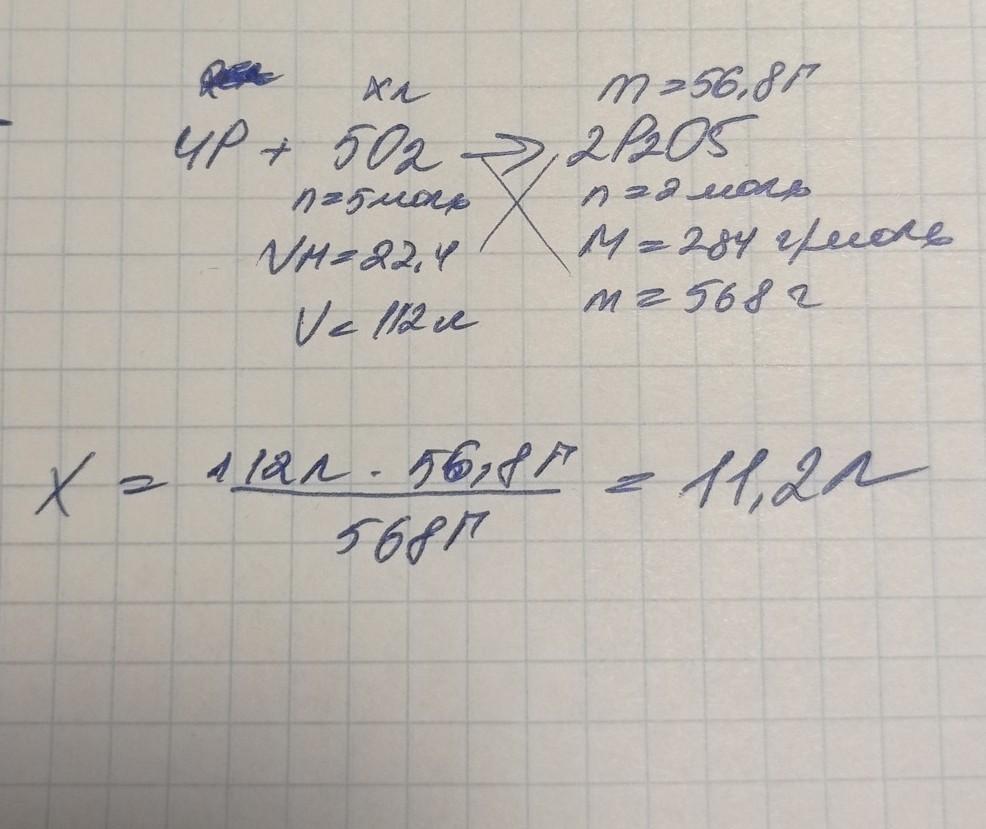 хл m = 56,8г
4P + 5O2 → 2P2O5
n = 5 моль n = 2 моль
VH = 22,4 M = 284 г/моль
V = 112 л m = 568 г
X = 112л · 56,8г / 568г = 11,2л